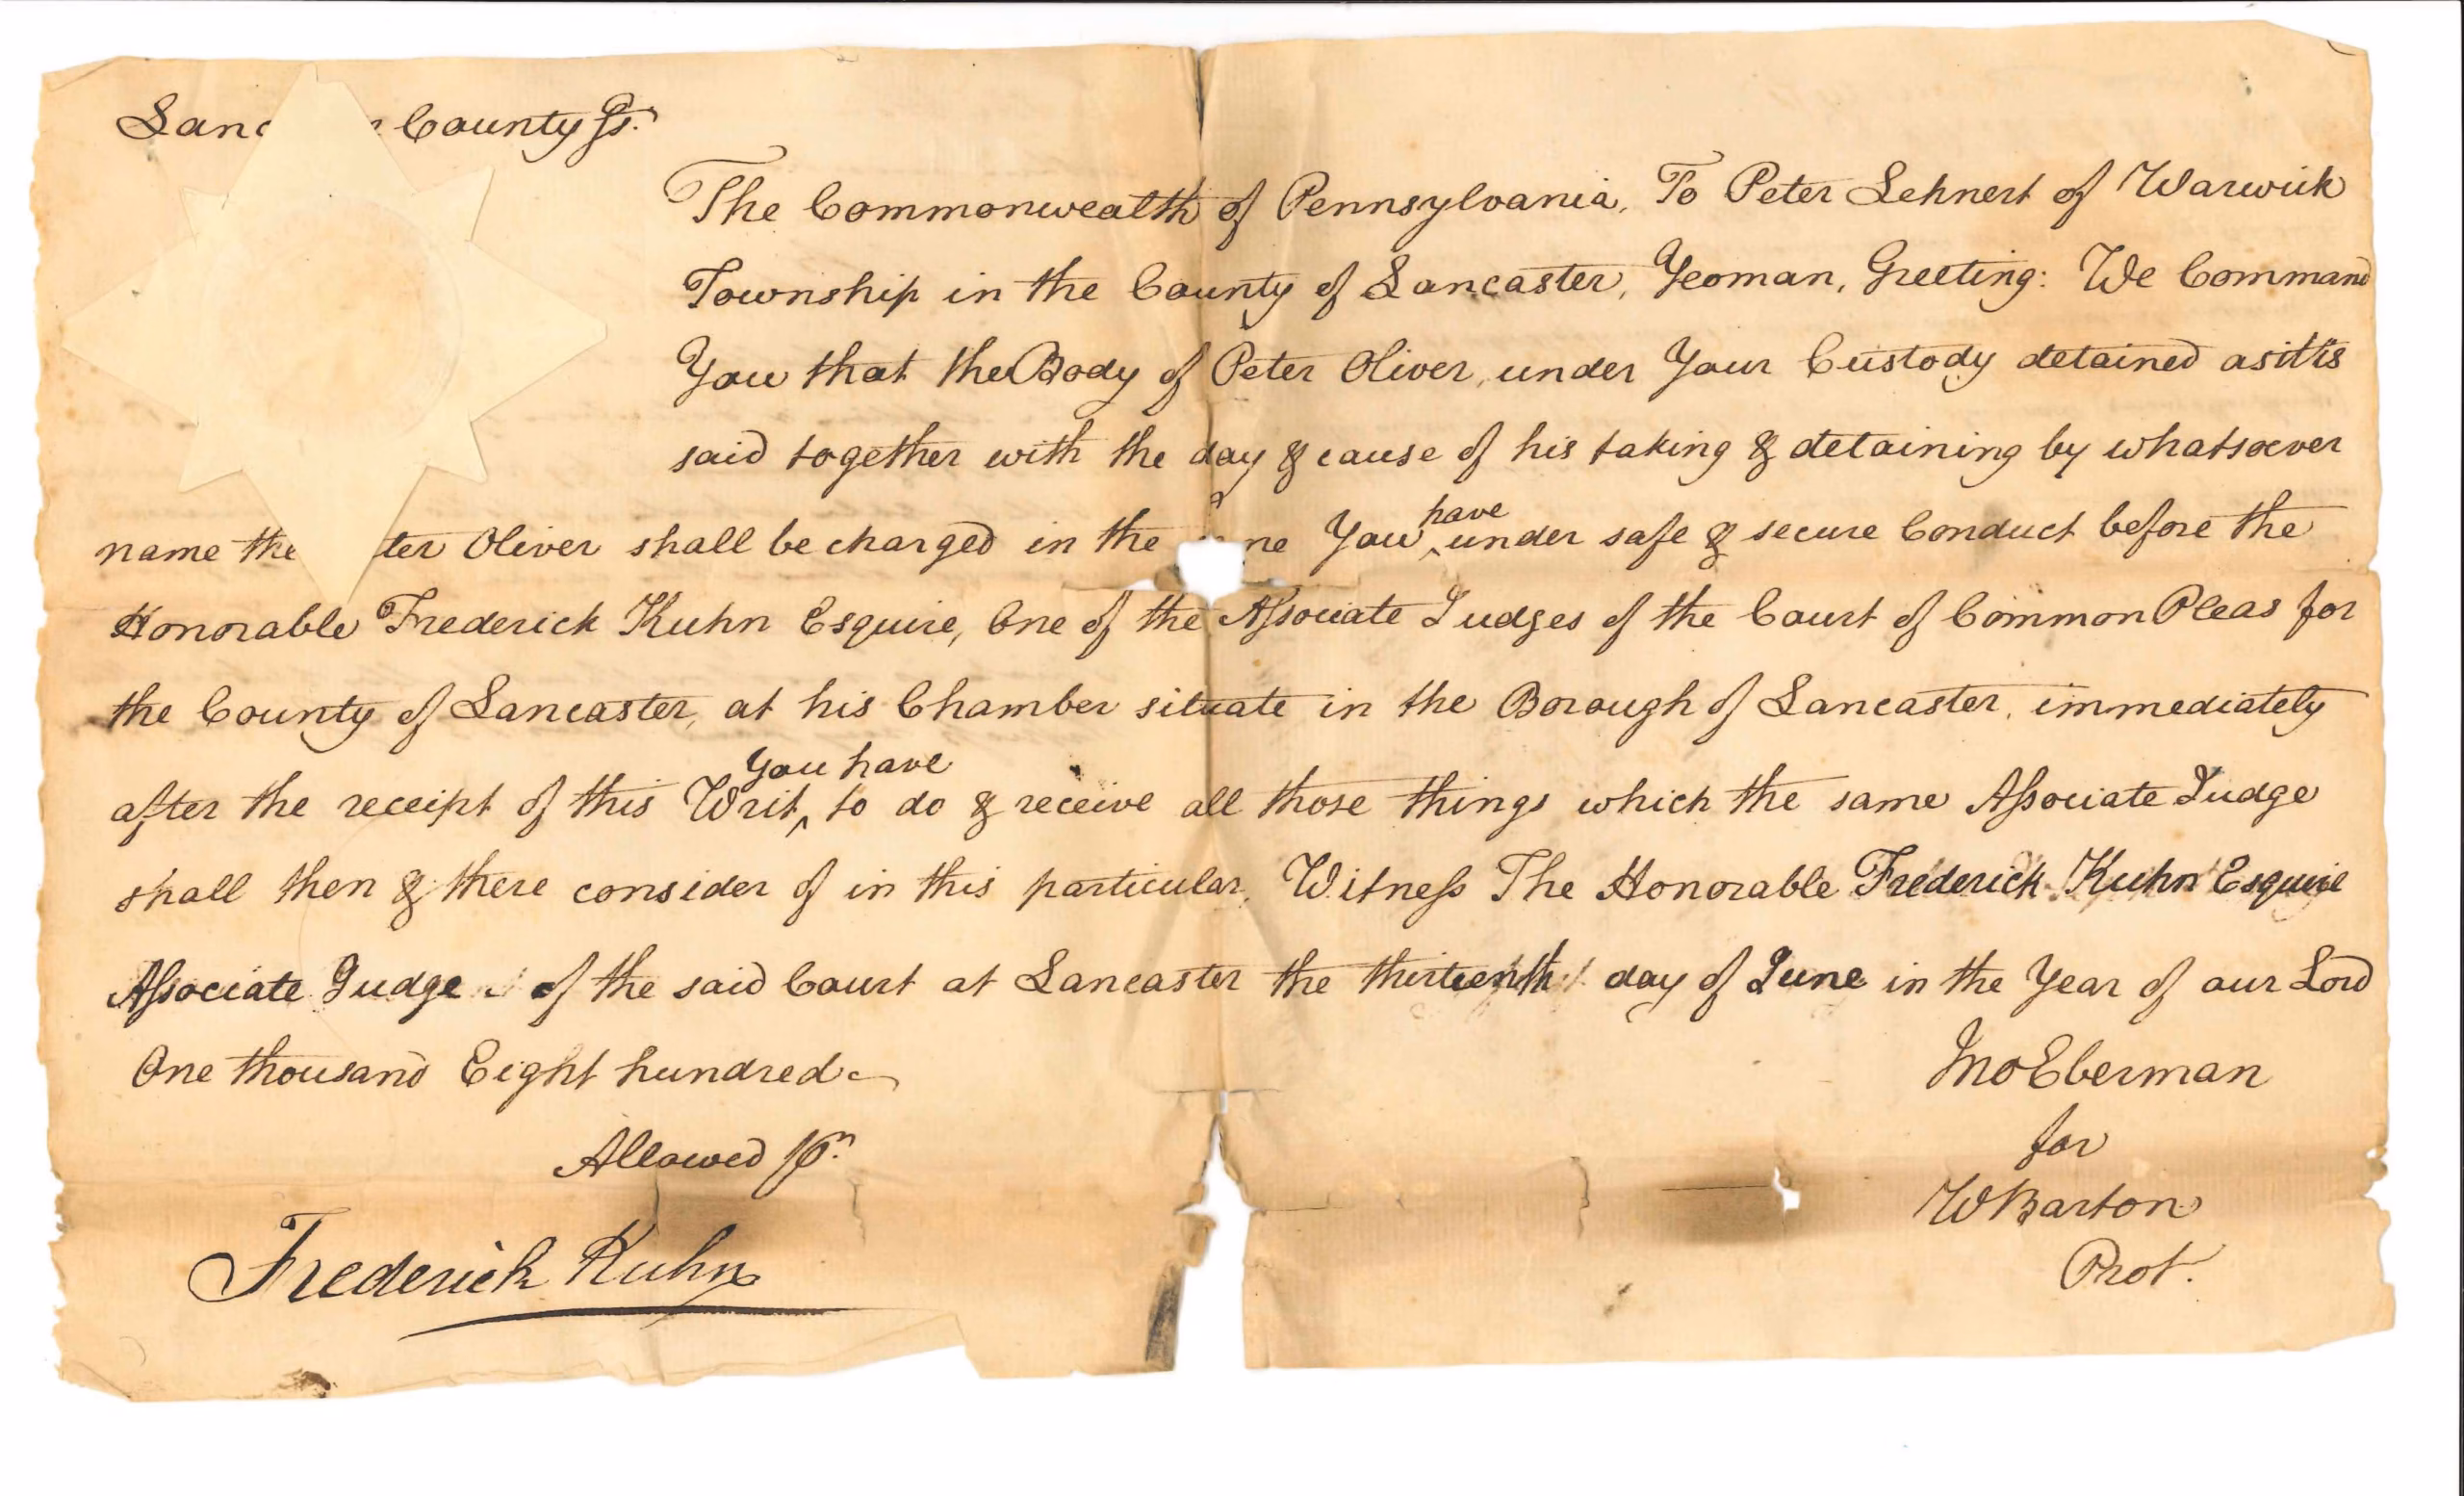 Lanc County Ss.
The Commonwealth of Pennsylvania, To Peter Lehnert of Warwick
Township in the County of Lancaster, Yeoman, Greeting: We Command
You that the Body of Peter Oliver, under Your Custody detained as it is
said together with the day & cause of his taking & detaining by whatsoever
have
name the ter Oliver shall be charged in the me You ^ under safe & secure Conduct before the
Honorable Frederick Kuhn Esquire, One of the Associate Judges of the Court of Common Pleas for
the County of Lancaster, at his Chamber situate in the Borough of Lancaster, immediately
you have
after the receipt of this Writ ^ to do & receive all those things which the same Associate Judge
shall then & there consider of in this particular, Witness The Honorable Frederick Kuhn Esquire
Associate Judge of the said Court at Lancaster the thirteenth day of June in the Year of our Lord
One thousand Eight hundred
Jno Eberman
for
W Barton
Prot.
Allowed pr.
Frederick Kuhn